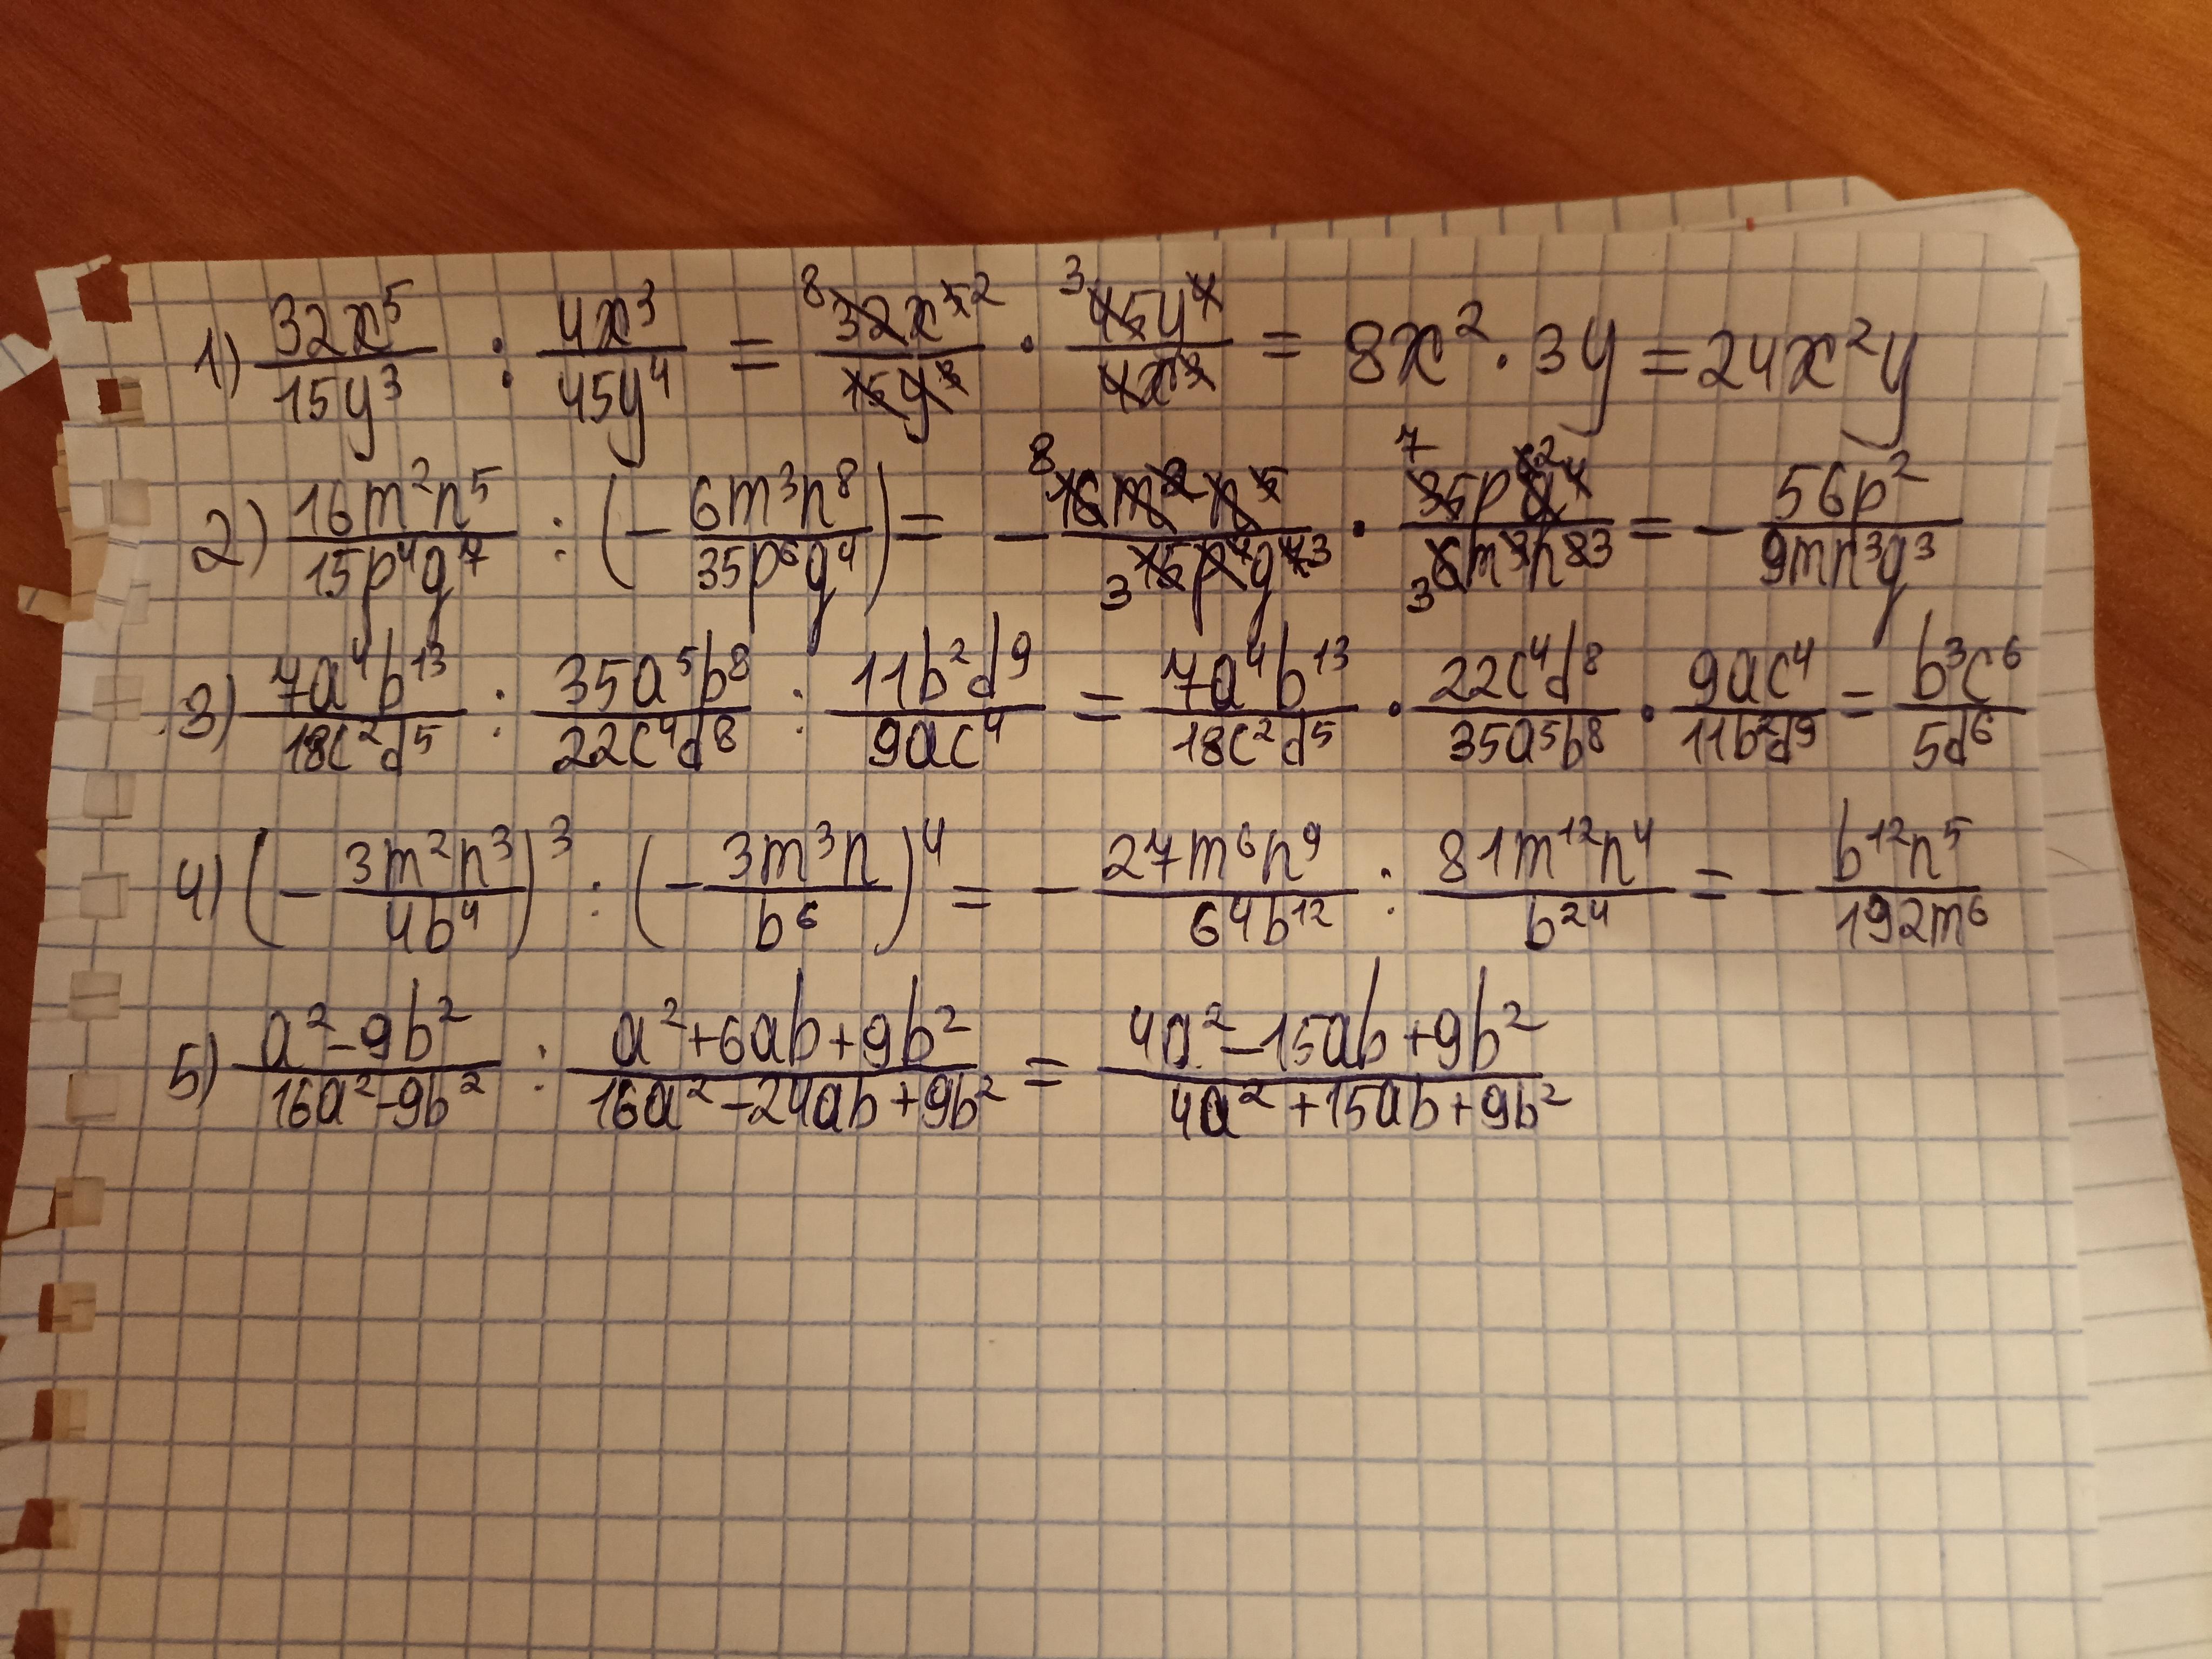 1) 32x⁵/15y³ : 4x³/45y⁴ = ⁸32x⁵²/15y³ · ³45y⁴/4x³ = 8x² · 3y = 24x²y
2) 16m²n⁵/15p⁴q⁷ : (- 6m³n⁸/35p⁶q⁴) = - ⁸16m²n⁵/₃15p⁴q⁷³ · ⁷35p⁶²q⁴/₃6m³n⁸³ = - 56p²/9mn³q³
3) 7a⁴b¹³/18c²d⁵ : 35a⁵b⁸/22c⁴d⁸ : 11b²d⁹/9ac⁴ = 7a⁴b¹³/18c²d⁵ · 22c⁴d⁸/35a⁵b⁸ · 9ac⁴/11b²d⁹ = b³c⁶/5d⁶
4) (- 3m²n³/4b⁴)³ : (- 3m³n/b⁶)⁴ = - 27m⁶n⁹/64b¹² : 81m¹²n⁴/b²⁴ = - b¹²n⁵/192m⁶
5) a²-9b²/16a²-9b² : a²+6ab+9b²/16a²-24ab+9b² = 4a²-15ab+9b²/4a²+15ab+9b²